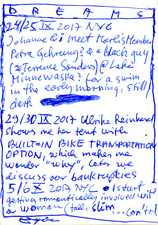 DREAMS
24/25 IX 2017 NYC
Johanne & i meet Morte's Member
Petra Gehrung? @ & black guy
(Terence Sanders) @ Lake
Minnewaska? for a swim
in the early morning, still
dark
29/30 IX 2017 Ulrike Reinhard
shows me her tent with
BUILT-IN BIKE TRANSPORTATION
OPTION, which makes me
wonder "why", later we
discuss our bankruptcies
5/6 X 2017 NYC I start
getting romantically involved with
a woman (tall, slim ... cont'd